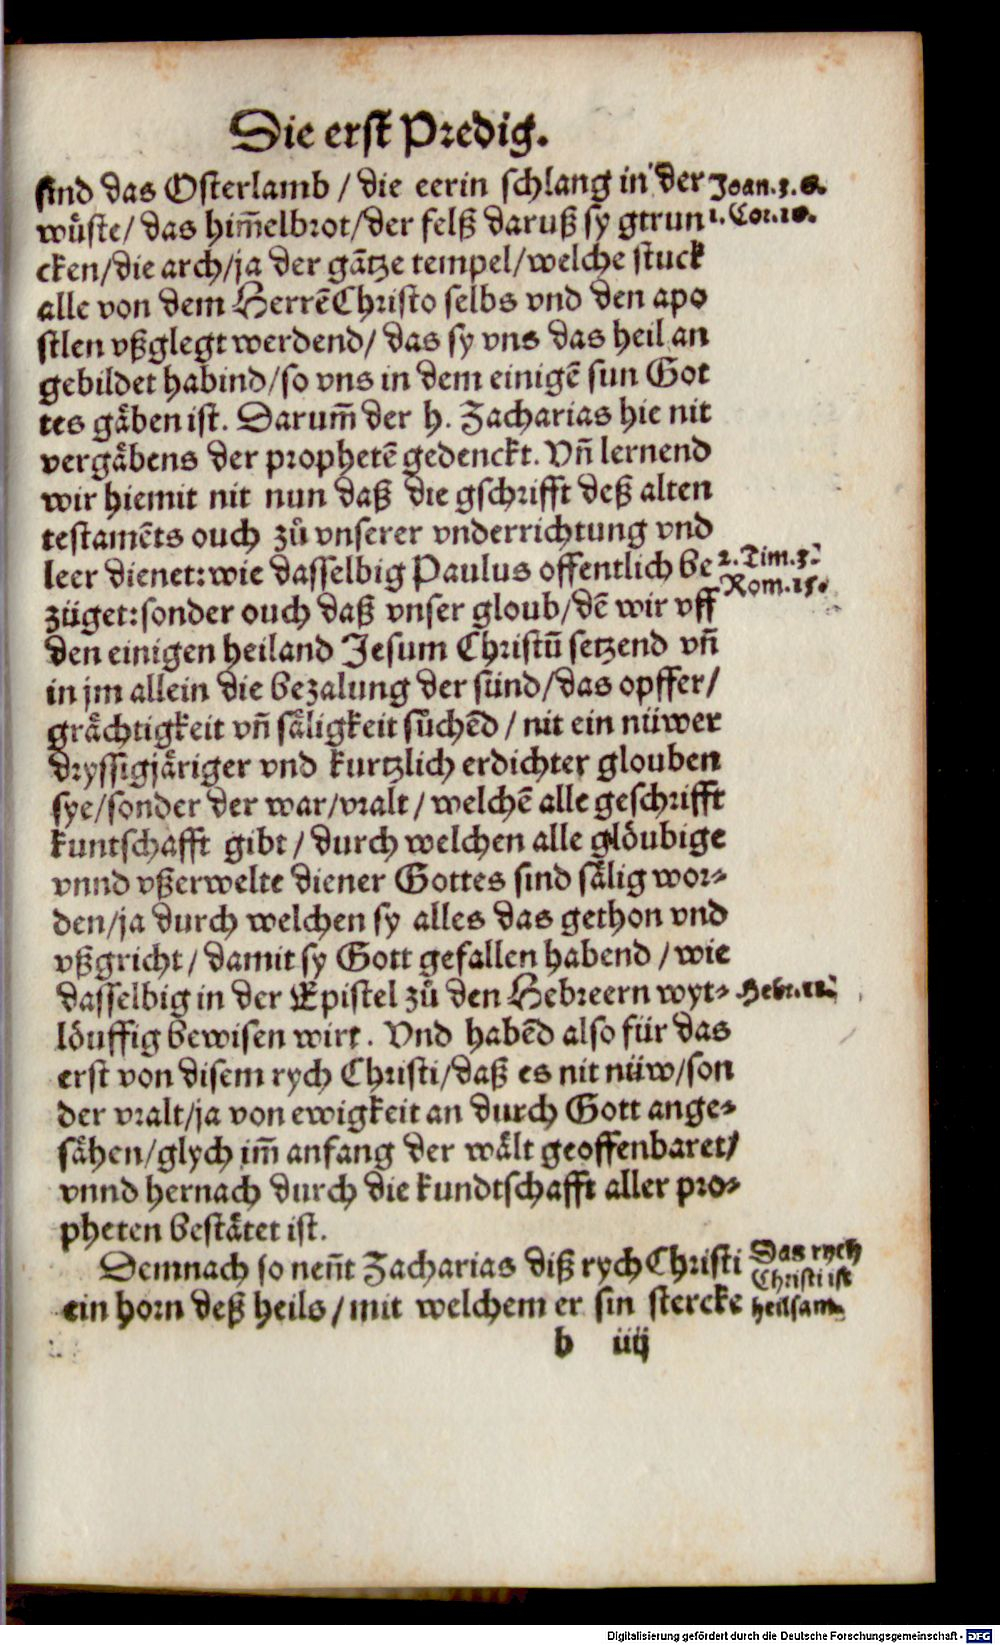 Die erst Predig.
sind das Osterlamb / die eerin schlang in der
wuͤste/ das him̃elbrot/der felß daruß sy gtrun
cken/die arch/ja der gãtze tempel/welche stuck
alle von dem HerrẽChristo selbs vnd den apo
stlen vßglegt werdend/ das sy vns das heil an
gebildet habind/so vns in dem einigẽ sun Got
tes gaͤben ist. Darum̃ der h. Zacharias hie nit
vergaͤbens der prophetẽ gedenckt. Vñ lernend
wir hiemit nit nun daß die gschrifft deß alten
testamẽts ouch zuͦ vnserer vnderrichtung vnd
leer dienet: wie dasselbig Paulus offentlich be
züget: sonder ouch daß vnser gloub/dẽ wir vff
den einigen heiland Jesum Christũ setzend vñ
in jm allein die bezalung der sünd/das opffer/
graͤchtigkeit vñ saͤligkeit suͦchẽd / nit ein nüwer
dryssigjaͤriger vnd kurtzlich erdichter glouben
sye/sonder der war/vralt / welchẽ alle geschrifft
kuntschafft gibt / durch welchen alle gloͤubige
vnnd vßerwelte diener Gottes sind saͤlig wor-
den/ja durch welchen sy alles das gethon vnd
vßgricht / damit sy Gott gefallen habend / wie
dasselbig in der Epistel zuͦ den Hebreern wyt-
loͤuffig bewisen wirt. Vnd habẽd also für das
erst von disem rych Christi/daß es nit nüw/son
der vralt/ja von ewigkeit an durch Gott ange-
saͤhen/glych im̃ anfang der waͤlt geoffenbaret/
vnnd hernach durch die kundtschafft aller pro-
pheten bestaͤtet ist.
Demnach so neñt Zacharias diß rych Christi
ein horn deß heils / mit welchem er sin stercke
b iiij
Joan. 3. 6.
1. Cor. 10.
2. Tim. 3.
Rom. 15.
Hebr. 11.
Das rych
Christi ist
heilsam.
Digitalisierung gefördert durch die Deutsche Forschungsgemeinschaft - DFG